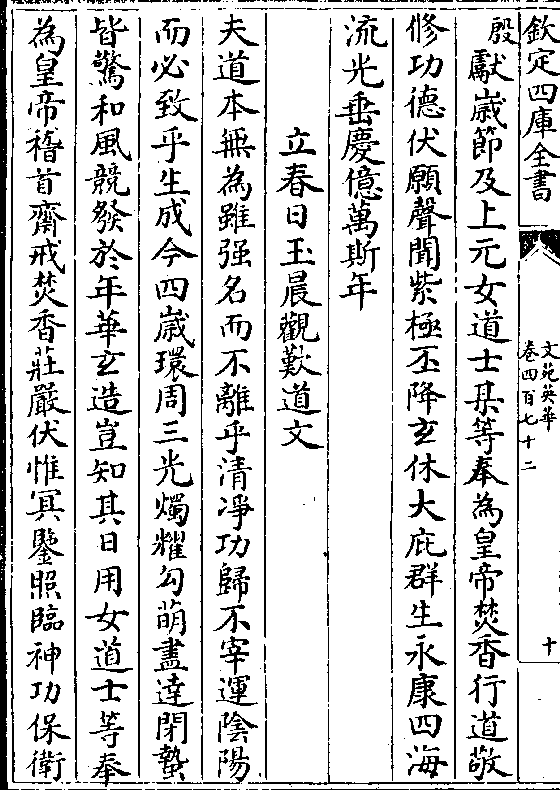 欽定四庫全書
文苑英華
卷四百七十二
十
殷獻歲節及上元女道士某等奉為皇帝焚香行道敬
修功德伏願聲聞紫極丕降玄休大庇群生永康四海
流光垂慶億萬斯年
立春日玉晨觀歎道文
夫道本無為雖强名而不離乎清淨功歸不宰運陰陽
而必致乎生成今四歲環周三光燭耀勾萌盡達閉蟄
皆驚和風競發於年華玄造豈知其日用女道士等奉
為皇帝稽首齋戒焚香莊嚴伏惟冥鑒照臨神功保衛